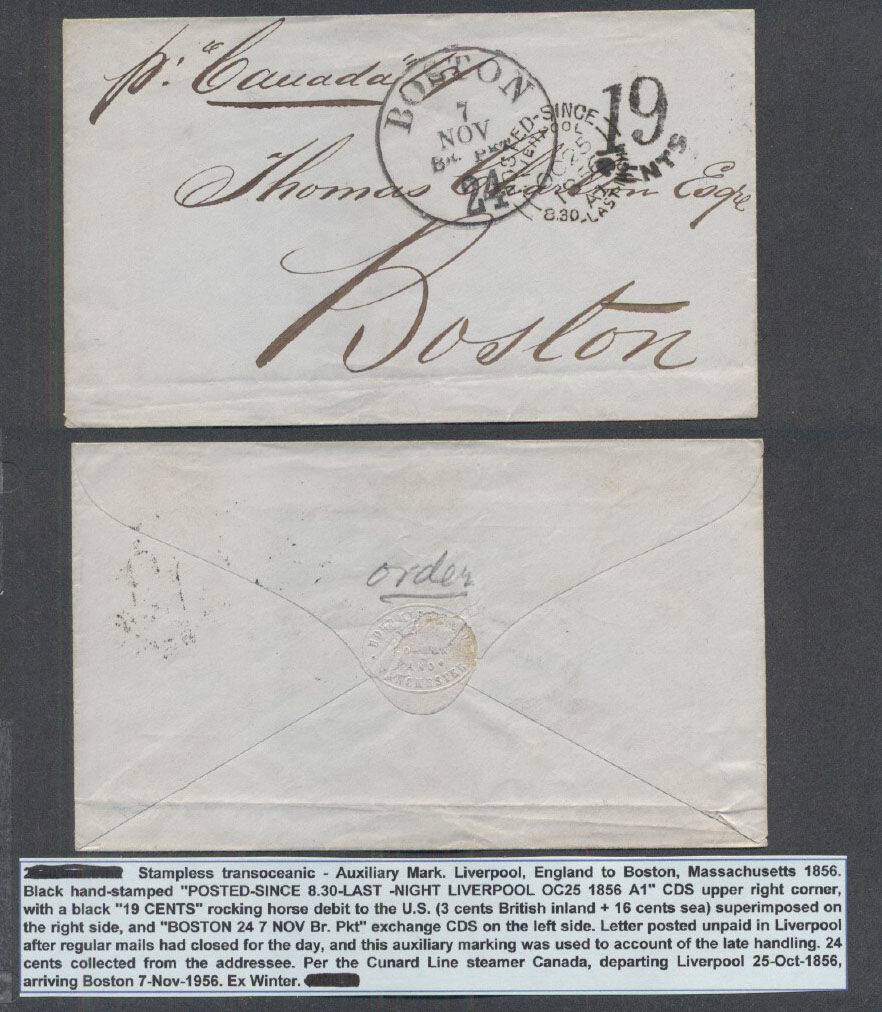 pr. "Canada"
BOSTON
7
NOV
Br. PKT
24
POSTED-SINCE
8.30-LAST-NIGHT
LIVERPOOL
OC25
1856
A1
19
CENTS
Thomas Esqre
Boston
order
MANCHESTER
Stampless transoceanic - Auxiliary Mark. Liverpool, England to Boston, Massachusetts 1856.
Black hand-stamped "POSTED-SINCE 8.30-LAST -NIGHT LIVERPOOL OC25 1856 A1" CDS upper right corner,
with a black "19 CENTS" rocking horse debit to the U.S. (3 cents British inland + 16 cents sea) superimposed on
the right side, and "BOSTON 24 7 NOV Br. Pkt" exchange CDS on the left side. Letter posted unpaid in Liverpool
after regular mails had closed for the day, and this auxiliary marking was used to account of the late handling. 24
cents collected from the addressee. Per the Cunard Line steamer Canada, departing Liverpool 25-Oct-1856,
arriving Boston 7-Nov-1956. Ex Winter.